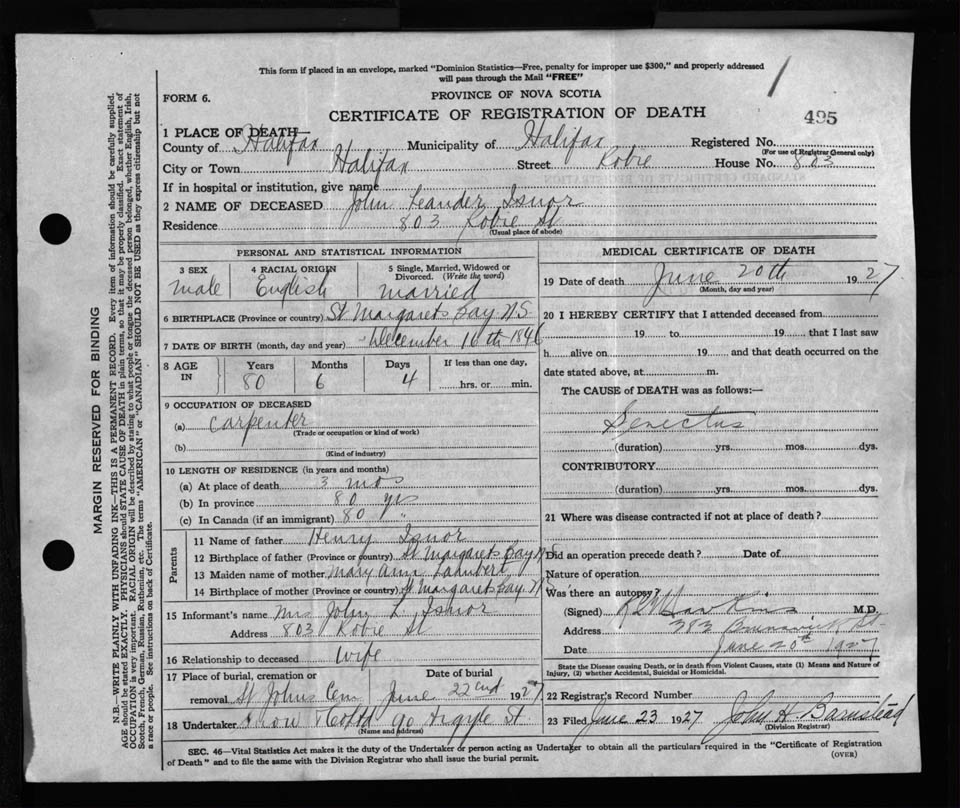 This form if placed in an envelope, marked "Dominion Statistics—Free, penalty for improper use $300," and properly addressed
will pass through the Mail "FREE"
1
FORM 6.
PROVINCE OF NOVA SCOTIA
CERTIFICATE OF REGISTRATION OF DEATH
495
1 PLACE OF DEATH—
County of Halifax Municipality of Halifax Registered No.
(For use of Registrar General only)
City or Town Halifax Street Robie House No. 803
If in hospital or institution, give name
2 NAME OF DECEASED John Leander Isnor
Residence 803 Robie St
(Usual place of abode)
PERSONAL AND STATISTICAL INFORMATION
3 SEX male
4 RACIAL ORIGIN English
5 Single, Married, Widowed or Divorced. (Write the word) married
6 BIRTHPLACE (Province or country) St Margarets Bay N S
7 DATE OF BIRTH (month, day and year) December 16th 1846
8 AGE IN Years 80 Months 6 Days 4 If less than one day, hrs. or min.
9 OCCUPATION OF DECEASED
(a) Carpenter
(Trade or occupation or kind of work)
(b)
(Kind of industry)
10 LENGTH OF RESIDENCE (in years and months)
(a) At place of death 3 mos
(b) In province 80 yrs
(c) In Canada (if an immigrant) 80 "
Parents
11 Name of father Henry Isnor
12 Birthplace of father (Province or country) St Margarets Bay N S
13 Maiden name of mother Mary Ann Lahnbert
14 Birthplace of mother (Province or country) St Margarets Bay N S
15 Informant's name Mrs John L Isnor
Address 803 Robie St
16 Relationship to deceased wife
17 Place of burial, cremation or removal St Johns Cem Date of burial June 22nd 1927
18 Undertaker Snow & Co Ltd 90 Argyle St.
(Name and address)
MEDICAL CERTIFICATE OF DEATH
19 Date of death June 20th 1927
(Month, day and year)
20 I HEREBY CERTIFY that I attended deceased from
19 to 19 that I last saw
h alive on 19 and that death occurred on the
date stated above, at m.
The CAUSE of DEATH was as follows:—
Senectus
(duration) yrs. mos. dys.
CONTRIBUTORY
(duration) yrs. mos. dys.
21 Where was disease contracted if not at place of death?
Did an operation precede death? Date of
Nature of operation
Was there an autopsy?
(Signed) Hawkins M.D.
Address 383 Brunswick St.
Date June 20th 1927
State the Disease causing Death, or in death from Violent Causes, state (1) Means and Nature of
Injury, (2) whether Accidental, Suicidal or Homicidal.
22 Registrar's Record Number
23 Filed June 23 1927 John H Barnstead
(Division Registrar)
SEC. 46—Vital Statistics Act makes it the duty of the Undertaker or person acting as Undertaker to obtain all the particulars required in the "Certificate of Registration
of Death" and to file the same with the Division Registrar who shall issue the burial permit.
(OVER)
MARGIN RESERVED FOR BINDING
N.B.—WRITE PLAINLY WITH UNFADING INK—THIS IS A PERMANENT RECORD. Every item of information should be carefully supplied.
AGE should be stated EXACTLY. PHYSICIANS should STATE CAUSE OF DEATH in plain terms, so that it may be properly classified. Exact statement of
OCCUPATION is very important. RACIAL ORIGIN will be described by stating to what people or tongue the deceased person belonged, whether English, Irish,
Scotch, French, German, Russian, Ruthenian, etc. The terms "AMERICAN" or "CANADIAN" SHOULD NOT BE USED as they express citizenship but not
a race or people. See instructions on back of Certificate.